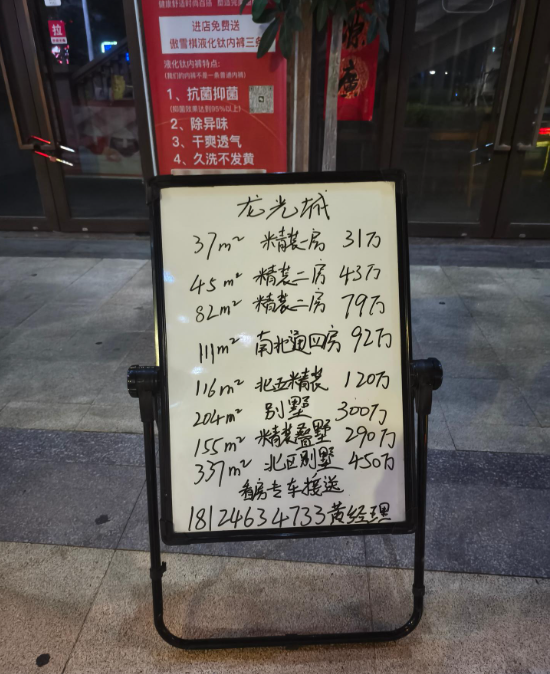 健康舒适时尚百搭
进店免费送
傲雪棋液化钛内裤三条
液化钛内裤特点:
(我们的内裤不是一条普通内裤)
1、抗菌抑菌
(抑菌效果达到99%以上)
2、除异味
3、干爽透气
4、久洗不发黄
拉
龙光城
37m² 精装一房 31万
45m² 精装二房 43万
82m² 精装二房 79万
111m² 南北通四房 92万
116m² 北五精装 120万
204m² 别墅 300万
155m² 精装叠墅 290万
337m² 北区别墅 450万
看房专车接送
18124634733黄经理